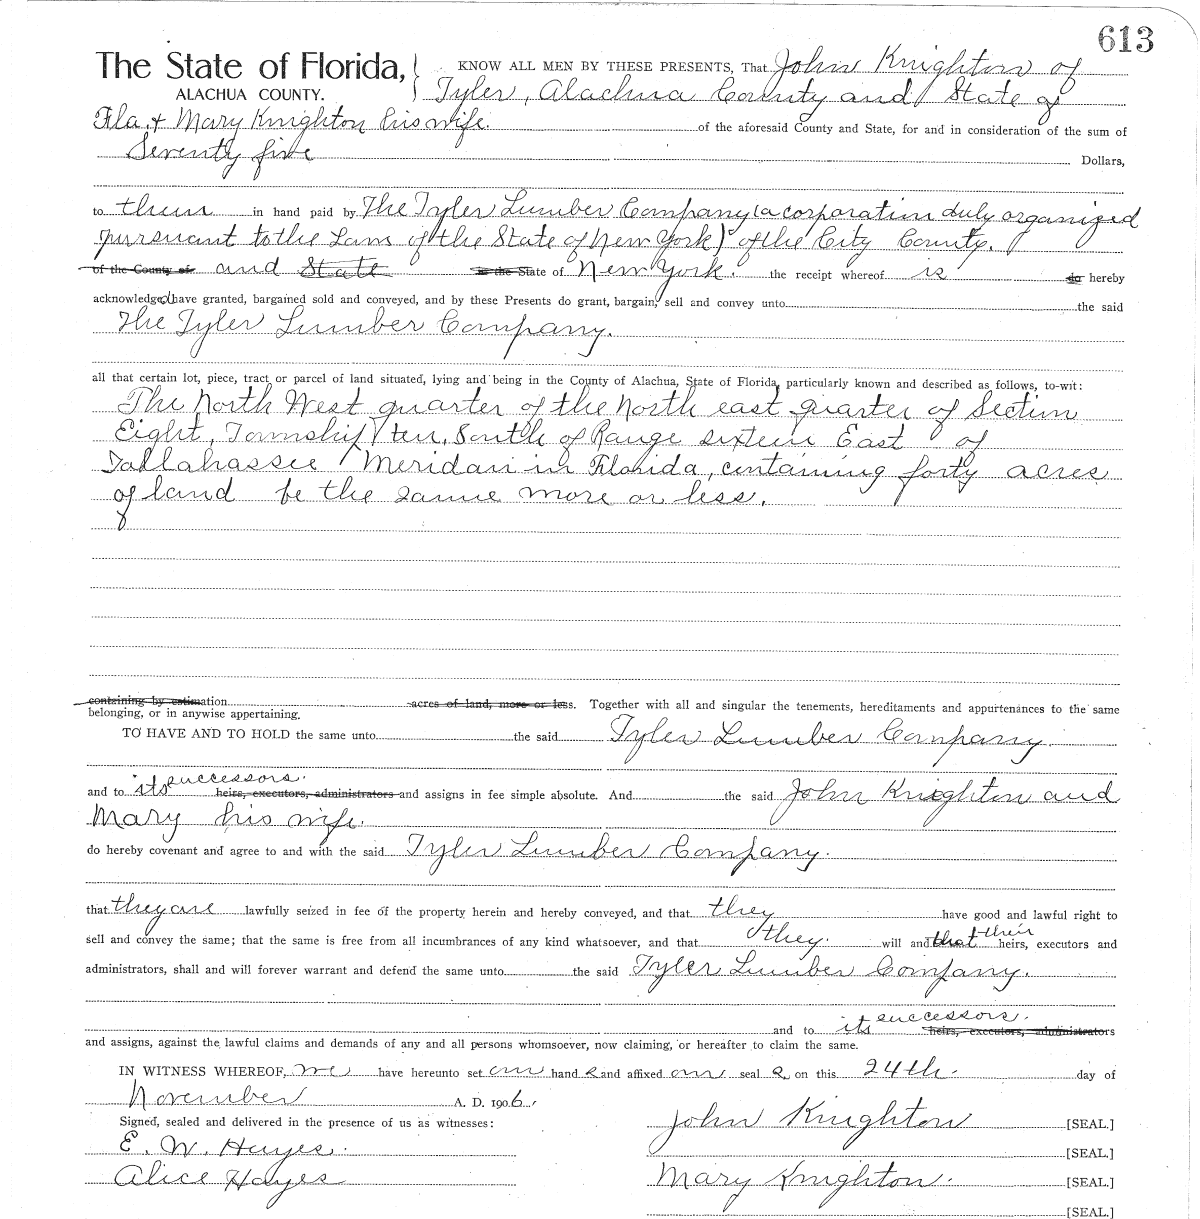 613
The State of Florida,
ALACHUA COUNTY.
KNOW ALL MEN BY THESE PRESENTS, That John Knighton of
Tyler, Alachua County and State of
Fla. & Mary Knighton his wife. of the aforesaid County and State, for and in consideration of the sum of
Seventy five Dollars,
to them in hand paid by The Tyler Lumber Company (a corporation duly organized
pursuant to the Laws of the State of New York) of the City County.
of the County of and State in the State of New York. the receipt whereof is do hereby
acknowledged have granted, bargained sold and conveyed, and by these Presents do grant, bargain, sell and convey unto the said
The Tyler Lumber Company.
all that certain lot, piece, tract or parcel of land situated, lying and being in the County of Alachua, State of Florida, particularly known and described as follows, to-wit:
The North West quarter of the North east quarter of Section
Eight, Township ten, South of Range sixteen East of
Tallahassee Meridan in Florida, containing forty acres
of land be the same more or less.
containing by estimation acres of land, more or less. Together with all and singular the tenements, hereditaments and appurtenances to the same
belonging, or in anywise appertaining.
TO HAVE AND TO HOLD the same unto the said Tyler Lumber Company.
and to its successors. heirs, executors, administrators and assigns in fee simple absolute. And the said John Knighton and
Mary his wife.
do hereby covenant and agree to and with the said Tyler Lumber Company.
that they are lawfully seized in fee of the property herein and hereby conveyed, and that they have good and lawful right to
sell and convey the same; that the same is free from all incumbrances of any kind whatsoever, and that they. will and that their heirs, executors and
administrators, shall and will forever warrant and defend the same unto the said Tyler Lumber Company.
and to its successors. heirs, executors, administrators
and assigns, against the lawful claims and demands of any and all persons whomsoever, now claiming, or hereafter to claim the same.
IN WITNESS WHEREOF, we have hereunto set our hand s and affixed our seal s on this 24th. day of
November A. D. 1906.
Signed, sealed and delivered in the presence of us as witnesses:
John Knighton [SEAL.]
E. W. Hayes. [SEAL.]
Alice Hayes Mary Knighton. [SEAL.]
[SEAL.]